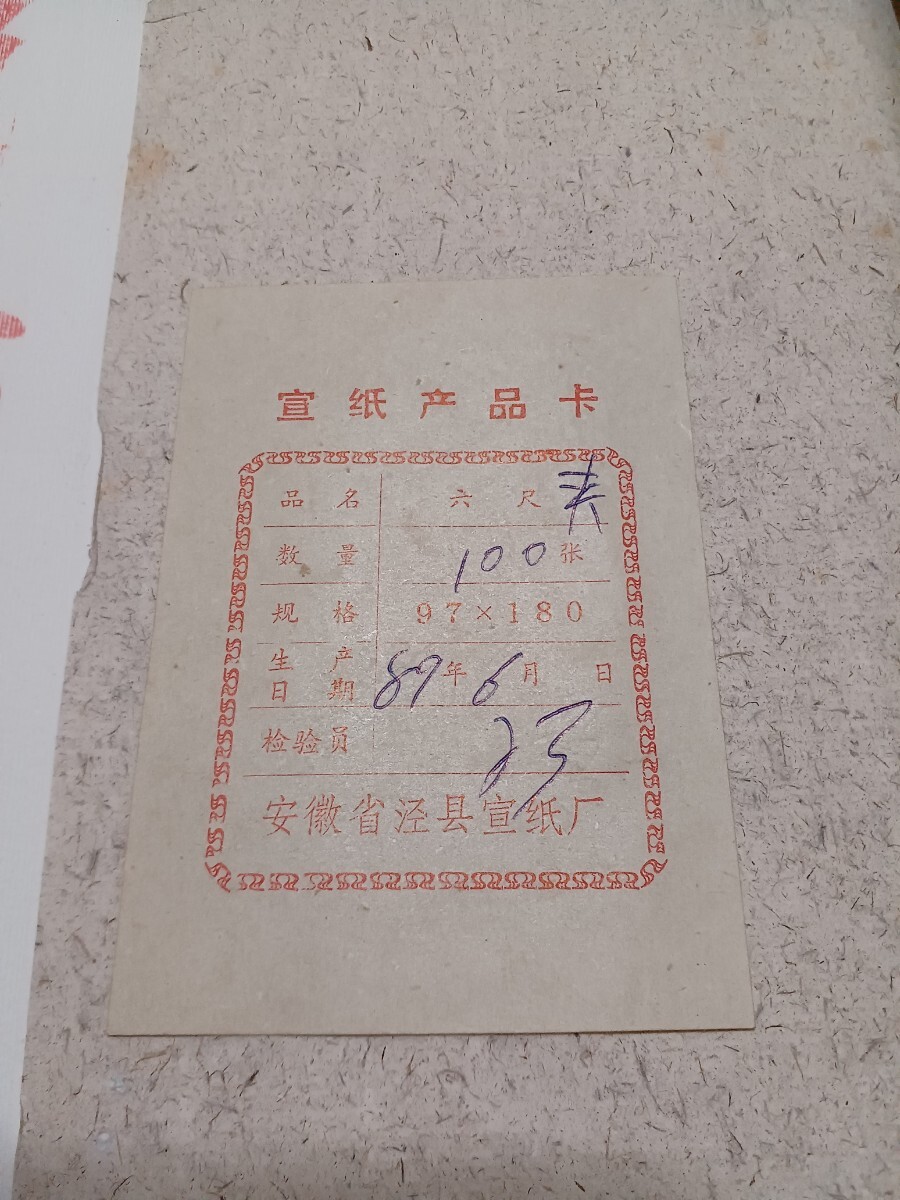 宣纸产品卡
品名 六尺夹
数量 100张
规格 97×180
生产日期 89年6月 日
检验员 23
安徽省泾县宣纸厂